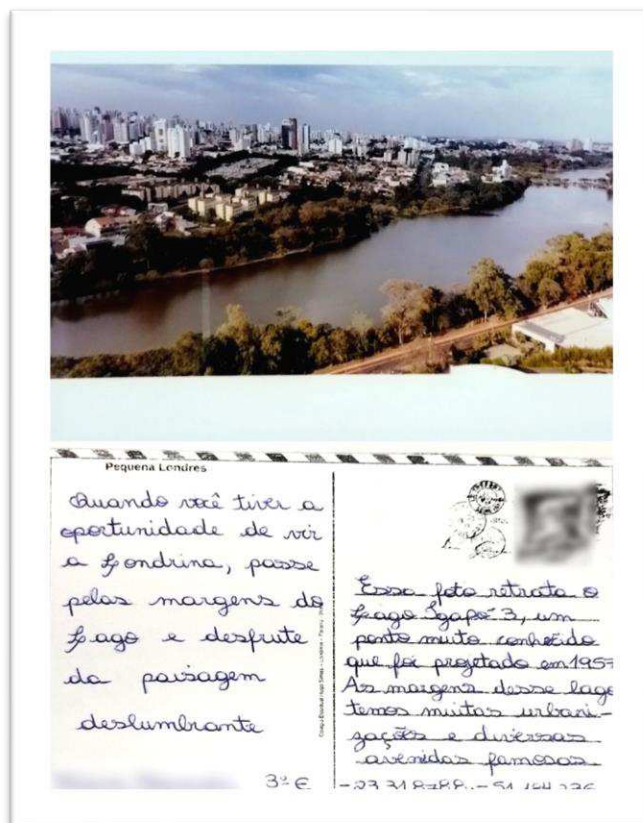 Pequena Londres
Quando você tiver a
oportunidade de vir
a Londrina, passe
pelas margens do
Lago e desfrute
da paisagem
deslumbrante
3º E
Essa foto retrata o
Lago Igapó 3, um
ponto muito conhecido
que foi projetado em 1957
As margens desse lago
temos muitas urbani-
zações e diversas
avenidas famosas